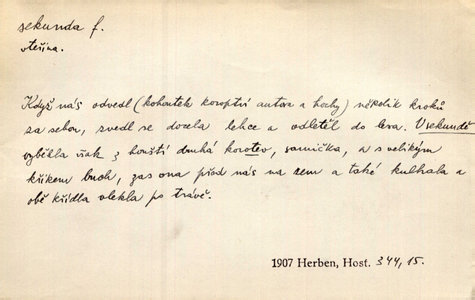 sekunda f.
vteřina.
Když nás odvedl (kohoutek koroptví autora a hochy) několik kroků
za sebou, zvedl se docela lehce a odletěl do leva. V sekundě
vyběhla však z houští druhá koroteo, samička, a s velikým
křikem buch, zas ona před nás na zem a také kulhala a
obě křídla vlekla po trávě.
1907 Herben, Host. 344, 15.